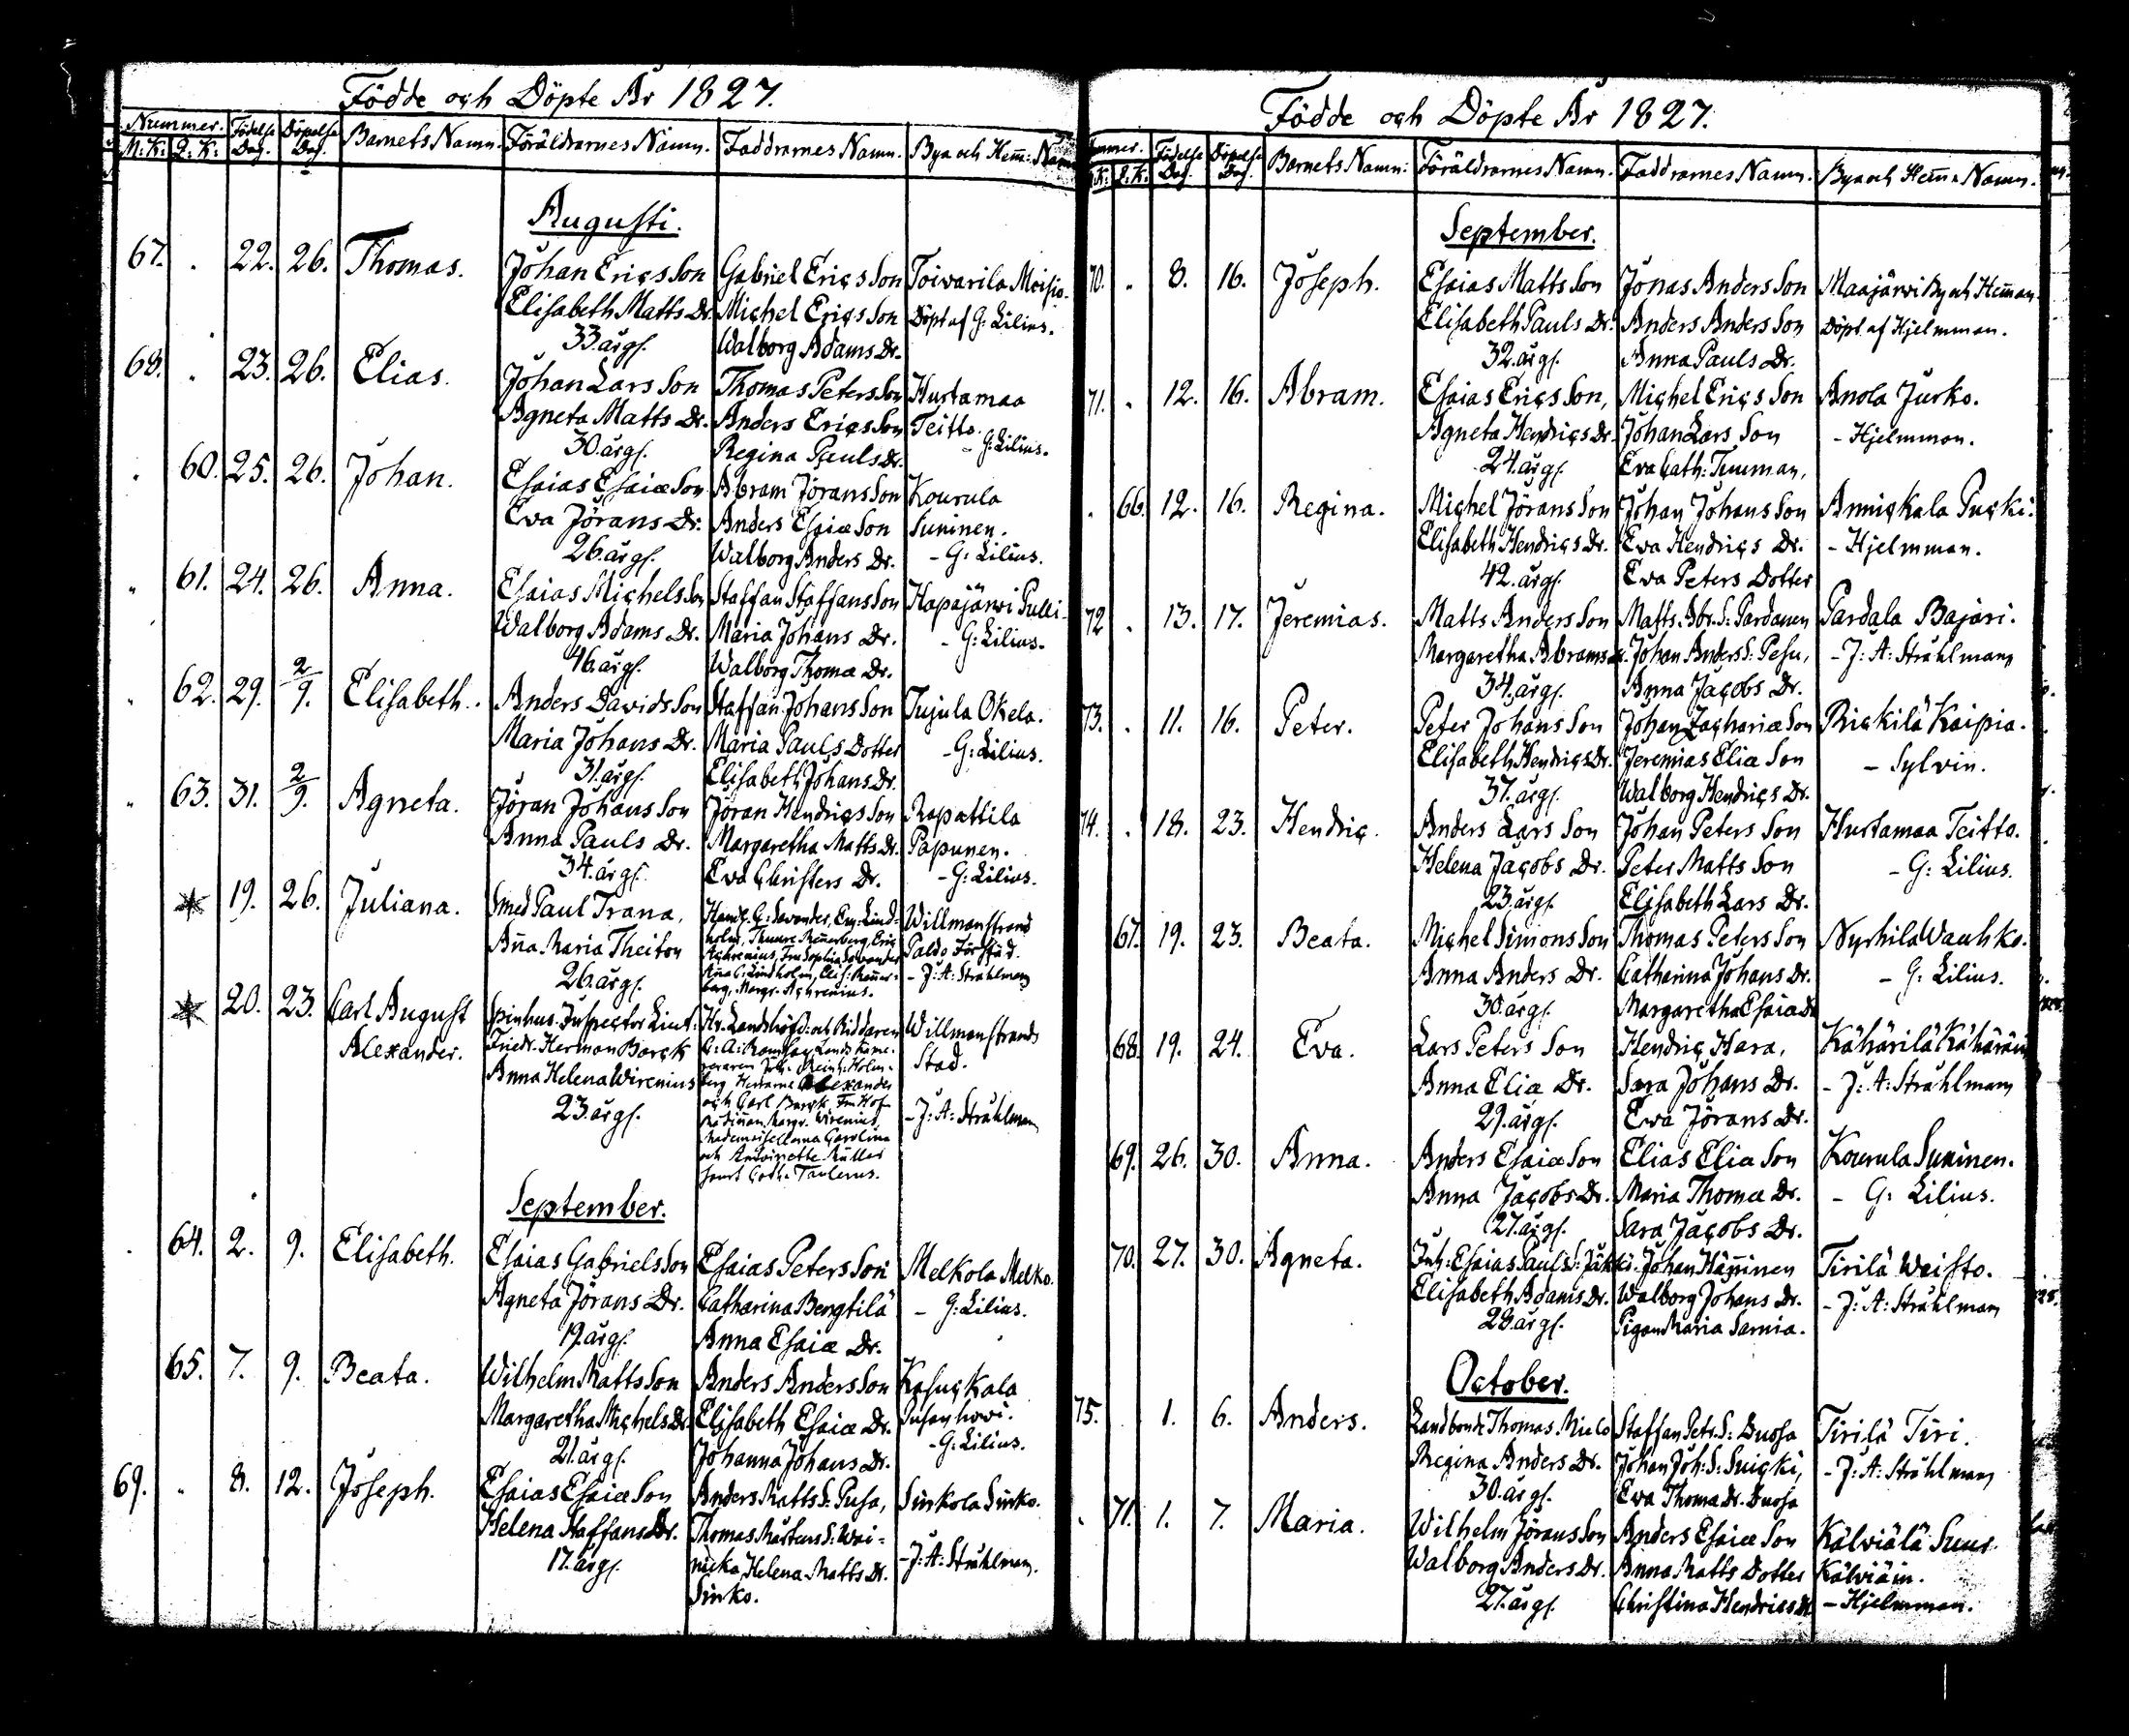 Födde och Döpte År 1827.
Nummer. Födelse Dag. Döpelse Dag. Barnets Namn. Föräldrarnes Namn. Faddrarnes Namn. Bya och Hem: Namn
M: K: Q: K:
Augusti.
67. 22. 26. Thomas. Johan Erics Son Gabriel Erics Son Toivarila Moisio.
Elisabeth Matts Dr. Michel Erics Son Döpt af G: Lilius.
33. årgs. Walborg Adams Dr.
68. 23. 26. Elias. Johan Lars Son Thomas Peters Son Hurtamaa
Agneta Matts Dr. Anders Erics Son Teitto.
30. årgs. Regina Pauls Dr. - G: Lilius.
60. 25. 26. Johan. Esaias Esaiæ Son Abram Jörans Son Kourula
Eva Jörans Dr. Anders Esaiæ Son Suninen.
26. årgs. Walborg Anders Dr. - G: Lilius.
61. 24. 26. Anna. Esaias Michels Son Staffan Staffans Son Hapajärwi Pulli
Walborg Adams Dr. Maria Johans Dr. - G: Lilius.
46. årgs. Walborg Thomæ Dr.
62. 29. 2/9. Elisabeth. Anders Davids Son Staffan Johans Son Tujula Okela.
Maria Johans Dr. Maria Pauls Dotter - G: Lilius.
31. årgs. Elisabeth Johans Dr.
63. 31. 2/9. Agneta. Jöran Johans Son Jöran Hendrics Son Rapattila
Anna Pauls Dr. Margaretha Matts Dr. Papunen.
34. årgs. Eva Christers Dr. - G: Lilius.
19. 26. Juliana. Smed Paul Trana, Handl. G: Savander, Eng: Lind- Willmanstrand
holm, Thuure Rennerberg, Eric Paldo Förstad.
Anna Maria Theiton Achrenius, Fru Sophia Savander - J: A: Stråhlman
26. årgs. Anna C: Lindholm, Elis: Renner-
berg, Margr. Achrenius.
20. 23. Carl August Spinhus-Inspector Lieut: Hr. Landshöfd: och Riddaren Willmanstrands
Alexander. Friedr. Herman Barck C: A: Ramsay Lands Kame- Stad.
Anna Helena Wirenius reraren Joh: Reinh: Holm-
berg Herrarne Alexander
23. årgs. och Carl Barck, Fru Hof- - J: A: Stråhlman
Margr. Wirenius,
Mademoisellerna Carolina
och Antoinette Müller
samt Cath: Taulerus.
September.
64. 2. 9. Elisabeth. Esaias Gabriels Son Esaias Peters Son Melkola Melko.
Agneta Jörans Dr. Catharina Bengtilä - G: Lilius.
19. årgs. Anna Esaiæ Dr.
65. 7. 9. Beata. Wilhelm Matts Son Anders Anders Son Kasuckala
Margaretha Michels Dr. Elisabeth Esaiæ Dr.
21. årgs. Johanna Johans Dr. - G: Lilius.
69. 8. 12. Joseph. Esaias Esaiæ Son Anders Matts S: Pusa, Sinkola Sinko.
Helena Staffans Dr. Thomas Mårtens S: Wai-
17. årgs. nicka, Helena Matts Dr. - J: A: Stråhlman.
Sinko.
Födde och Döpte År 1827.
Nummer. Födelse Dag. Döpelse Dag. Barnets Namn: Föräldrarnes Namn. Faddrarnes Namn. Bya och Hem: Namn.
K: Q. K:
September.
70. 8. 16. Joseph. Esaias Matts Son Jonas Anders Son Maajärwi By och Heman.
Elisabeth Pauls Dr. Anders Anders Son Döpt af Hjelmman.
32. årgs. Anna Pauls Dr.
71. 12. 16. Abram. Esaias Erics Son, Michel Erics Son Anola Jurko.
Agneta Hendrics Dr. Johan Lars Son - Hjelmman.
24. årgs. Eva Cath: Timman,
66. 12. 16. Regina. Michel Jörans Son Johan Johans Son Annickala Pucki.
Elisabeth Hendrics Dr. Eva Hendrics Dr. - Hjelmman.
42. årgs. Eva Peters Dotter
72. 13. 17. Jeremias. Matts Anders Son Matts Abr. S: Pardanen Pardala Bajari.
Margaretha Abrams Dr. Johan Anders S: Pesu, - J: A: Stråhlman
34. årgs. Anna Jacobs Dr.
73. 11. 16. Peter. Peter Johans Son Johan Zachariæ Son Rickilä Kaipia.
Elisabeth Hendrics Dr. Jeremias Eliæ Son - Sylvin.
37. årgs. Walborg Hendrics Dr.
74. 18. 23. Hendric. Anders Lars Son Johan Peters Son Hurtamaa Teitto.
Helena Jacobs Dr. Peter Matts Son - G: Lilius.
23. årgs. Elisabeth Lars Dr.
67. 19. 23. Beata. Michel Simons Son Thomas Peters Son Nyrhilä Wauhko.
Anna Anders Dr. Catharina Johans Dr. - G: Lilius.
30. årgs. Margaretha Esaiæ Dr
68. 19. 24. Eva. Lars Peters Son Hendric Hara, Kähärilä Kähäräin
Anna Eliæ Dr. Sara Johans Dr. - J: A: Stråhlman
29. årgs. Eva Jörans Dr.
69. 26. 30. Anna. Anders Esaiæ Son Elias Eliæ Son Kourula Suninen.
Anna Jacobs Dr. Maria Thomæ Dr. - G: Lilius.
27. årgs. Sara Jacobs Dr.
70. 27. 30. Agneta. Inh: Esaias Pauls S: Johan Häninen Tirilä Waisto.
Elisabeth Adams Dr. Walborg Johans Dr. - J: A: Stråhlman
28. årgs. Pigan Maria Sarnia.
October.
75. 1. 6. Anders. Landbonde Thomas Staffan Petr. S: Buosa Tirilä Tiri.
Regina Anders Dr. Johan Joh: S: Suicki, - J: A: Stråhlman
30. årgs. Eva Thomæ Dr. Buosa
71. 1. 7. Maria. Wilhelm Jörans Son Anders Esaiæ Son Kälviälä Suur
Walborg Anders Dr. Anna Matts Dotter Kälviäin.
27. årgs. Christina Hendrics Dr - Hjelmman.